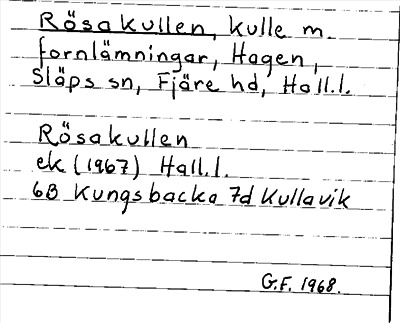 Rösakullen, kulle m.
fornlämningar, Hagen,
Släps sn, Fjäre hd, Hall.l.
Rösakullen
ek (1967) Hall.l.
6B Kungsbacka 7d Kullavik
G.F. 1968.